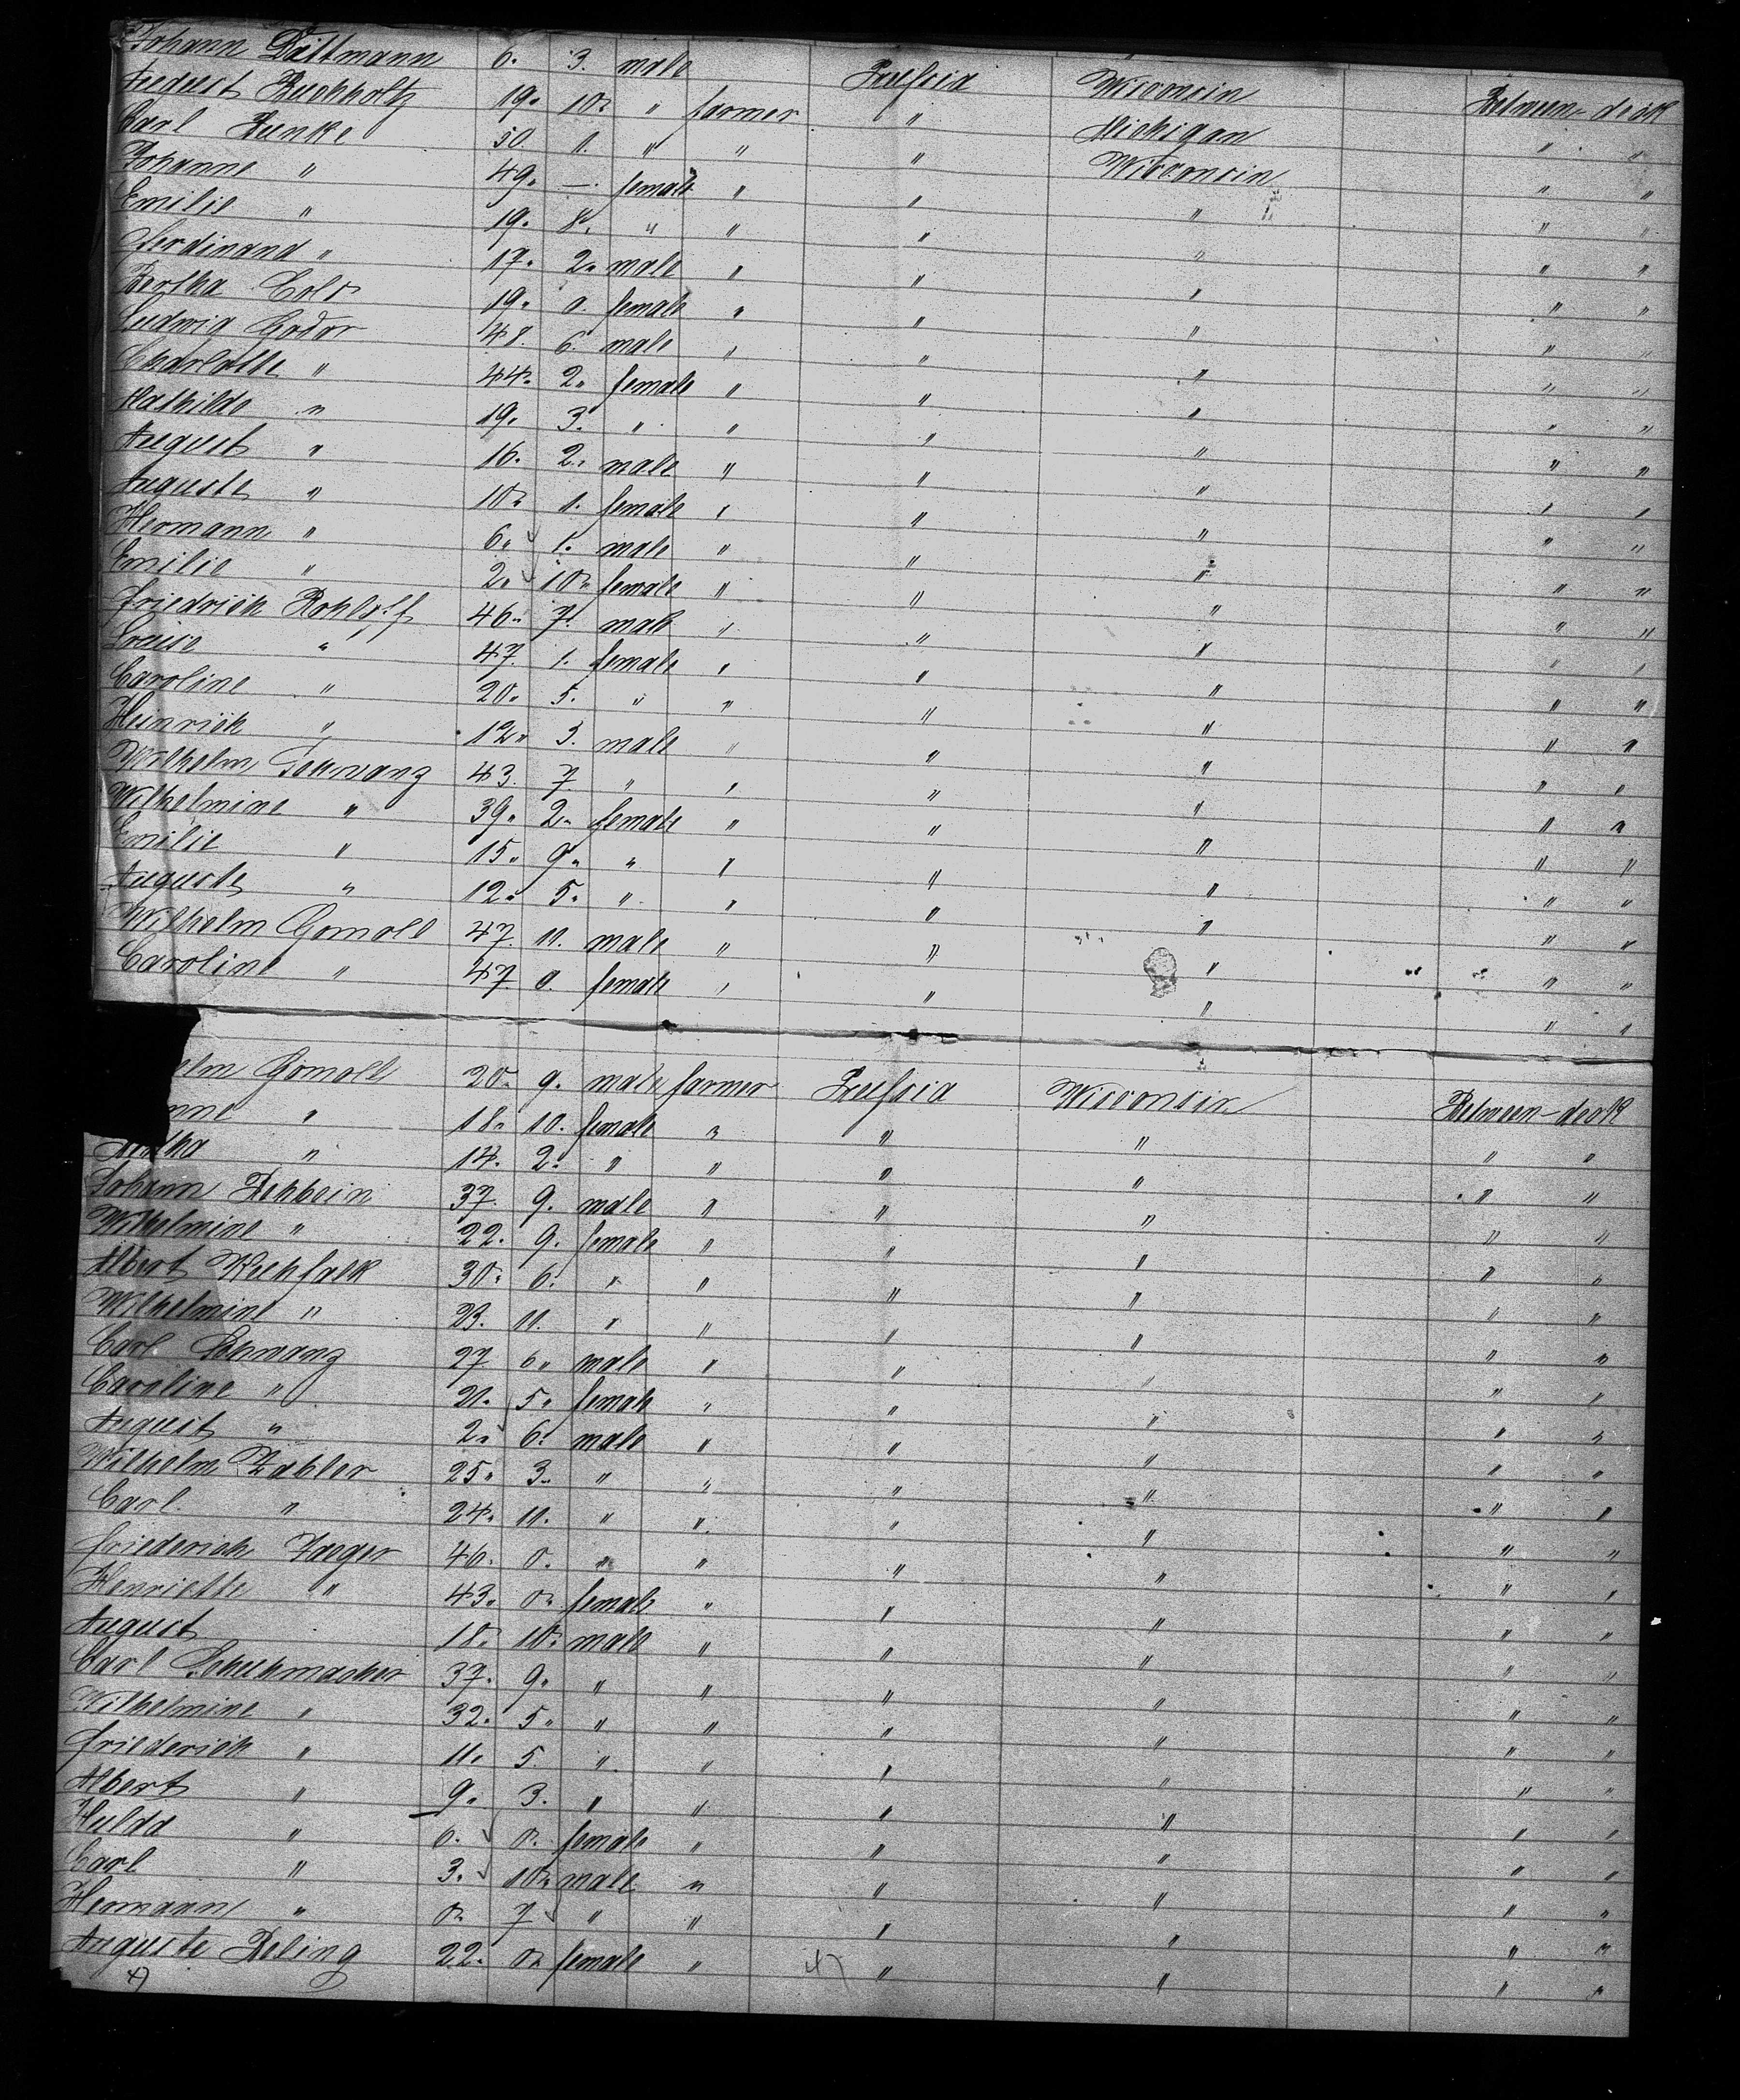 Johann Dittmann 6. 3. male Prussia Wisconsin Between-deck
August Buchholtz 19. 10. " farmer " Michigan " "
Carl Lunke 50. 11. " " " Wisconsin " "
Johanne " 49. —. female " " " " "
Emilie " 19. 8. " " " " " "
Ferdinand " 17. 2. male " " " " "
Bertha 19. 0. female " " " " "
Ludwig 48. 6. male " " " " "
Charlotte " 44. 2. female " " " " "
Mathilde " 19. 3. " " " " " "
August " 16. 2. male " " " " "
Auguste " 10. 1. female " " " " "
Hermann " 6. 1. male " " " " "
Emilie " 2. 10. female " " " " "
Friedrich Rohloff 46. 7. male " " " " "
Louise " 47. 1. female " " " " "
Caroline " 20. 5. " " " " " "
Heinrich " 12. 3. male " " " " "
Wilhelm Schwanz 43. 7. " " " " " "
Wilhelmine " 39. 2. female " " " " "
Emilie " 15. 9. " " " " " "
Auguste " 12. 5. " " " " " "
Wilhelm Gomoll 47. 11. male " " " " "
Caroline " 47. 0. female " " " " "
elm Gomoll 20. 9. male farmer Prussia Wisconsin Between-deck
nne " 18. 10. female " " " " "
Bertha " 14. 2. " " " " " "
Johann Rehbein 37. 9. male " " " " "
Wilhelmine " 22. 9. female " " " " "
Albert 30. 6. " " " " " "
Wilhelmine " 23. 11. " " " " " "
Carl Schwanz 27 6. male " " " " "
Caroline " 21. 5. female " " " " "
August " 2. 6. male " " " " "
Wilhelm Zabler 25. 3. " " " " " "
Carl " 24. 11. " " " " " "
Friederich Jaeger 46. 0. " " " " " "
Henriette " 43. 0. female " " " " "
August 18. 10. male " " " " "
Carl Schuhmacher 37. 9. " " " " " "
Wilhelmine " 32. 5. " " " " " "
Friederich " 11. 5. " " " " " "
Albert " 9. 3. " " " " " "
Hulda " 6. 0. female " " " " "
Carl " 3. 10. male " " " " "
Hermann " 0. 7 " " " " " "
Auguste Beling 22. 0. female " " " " "